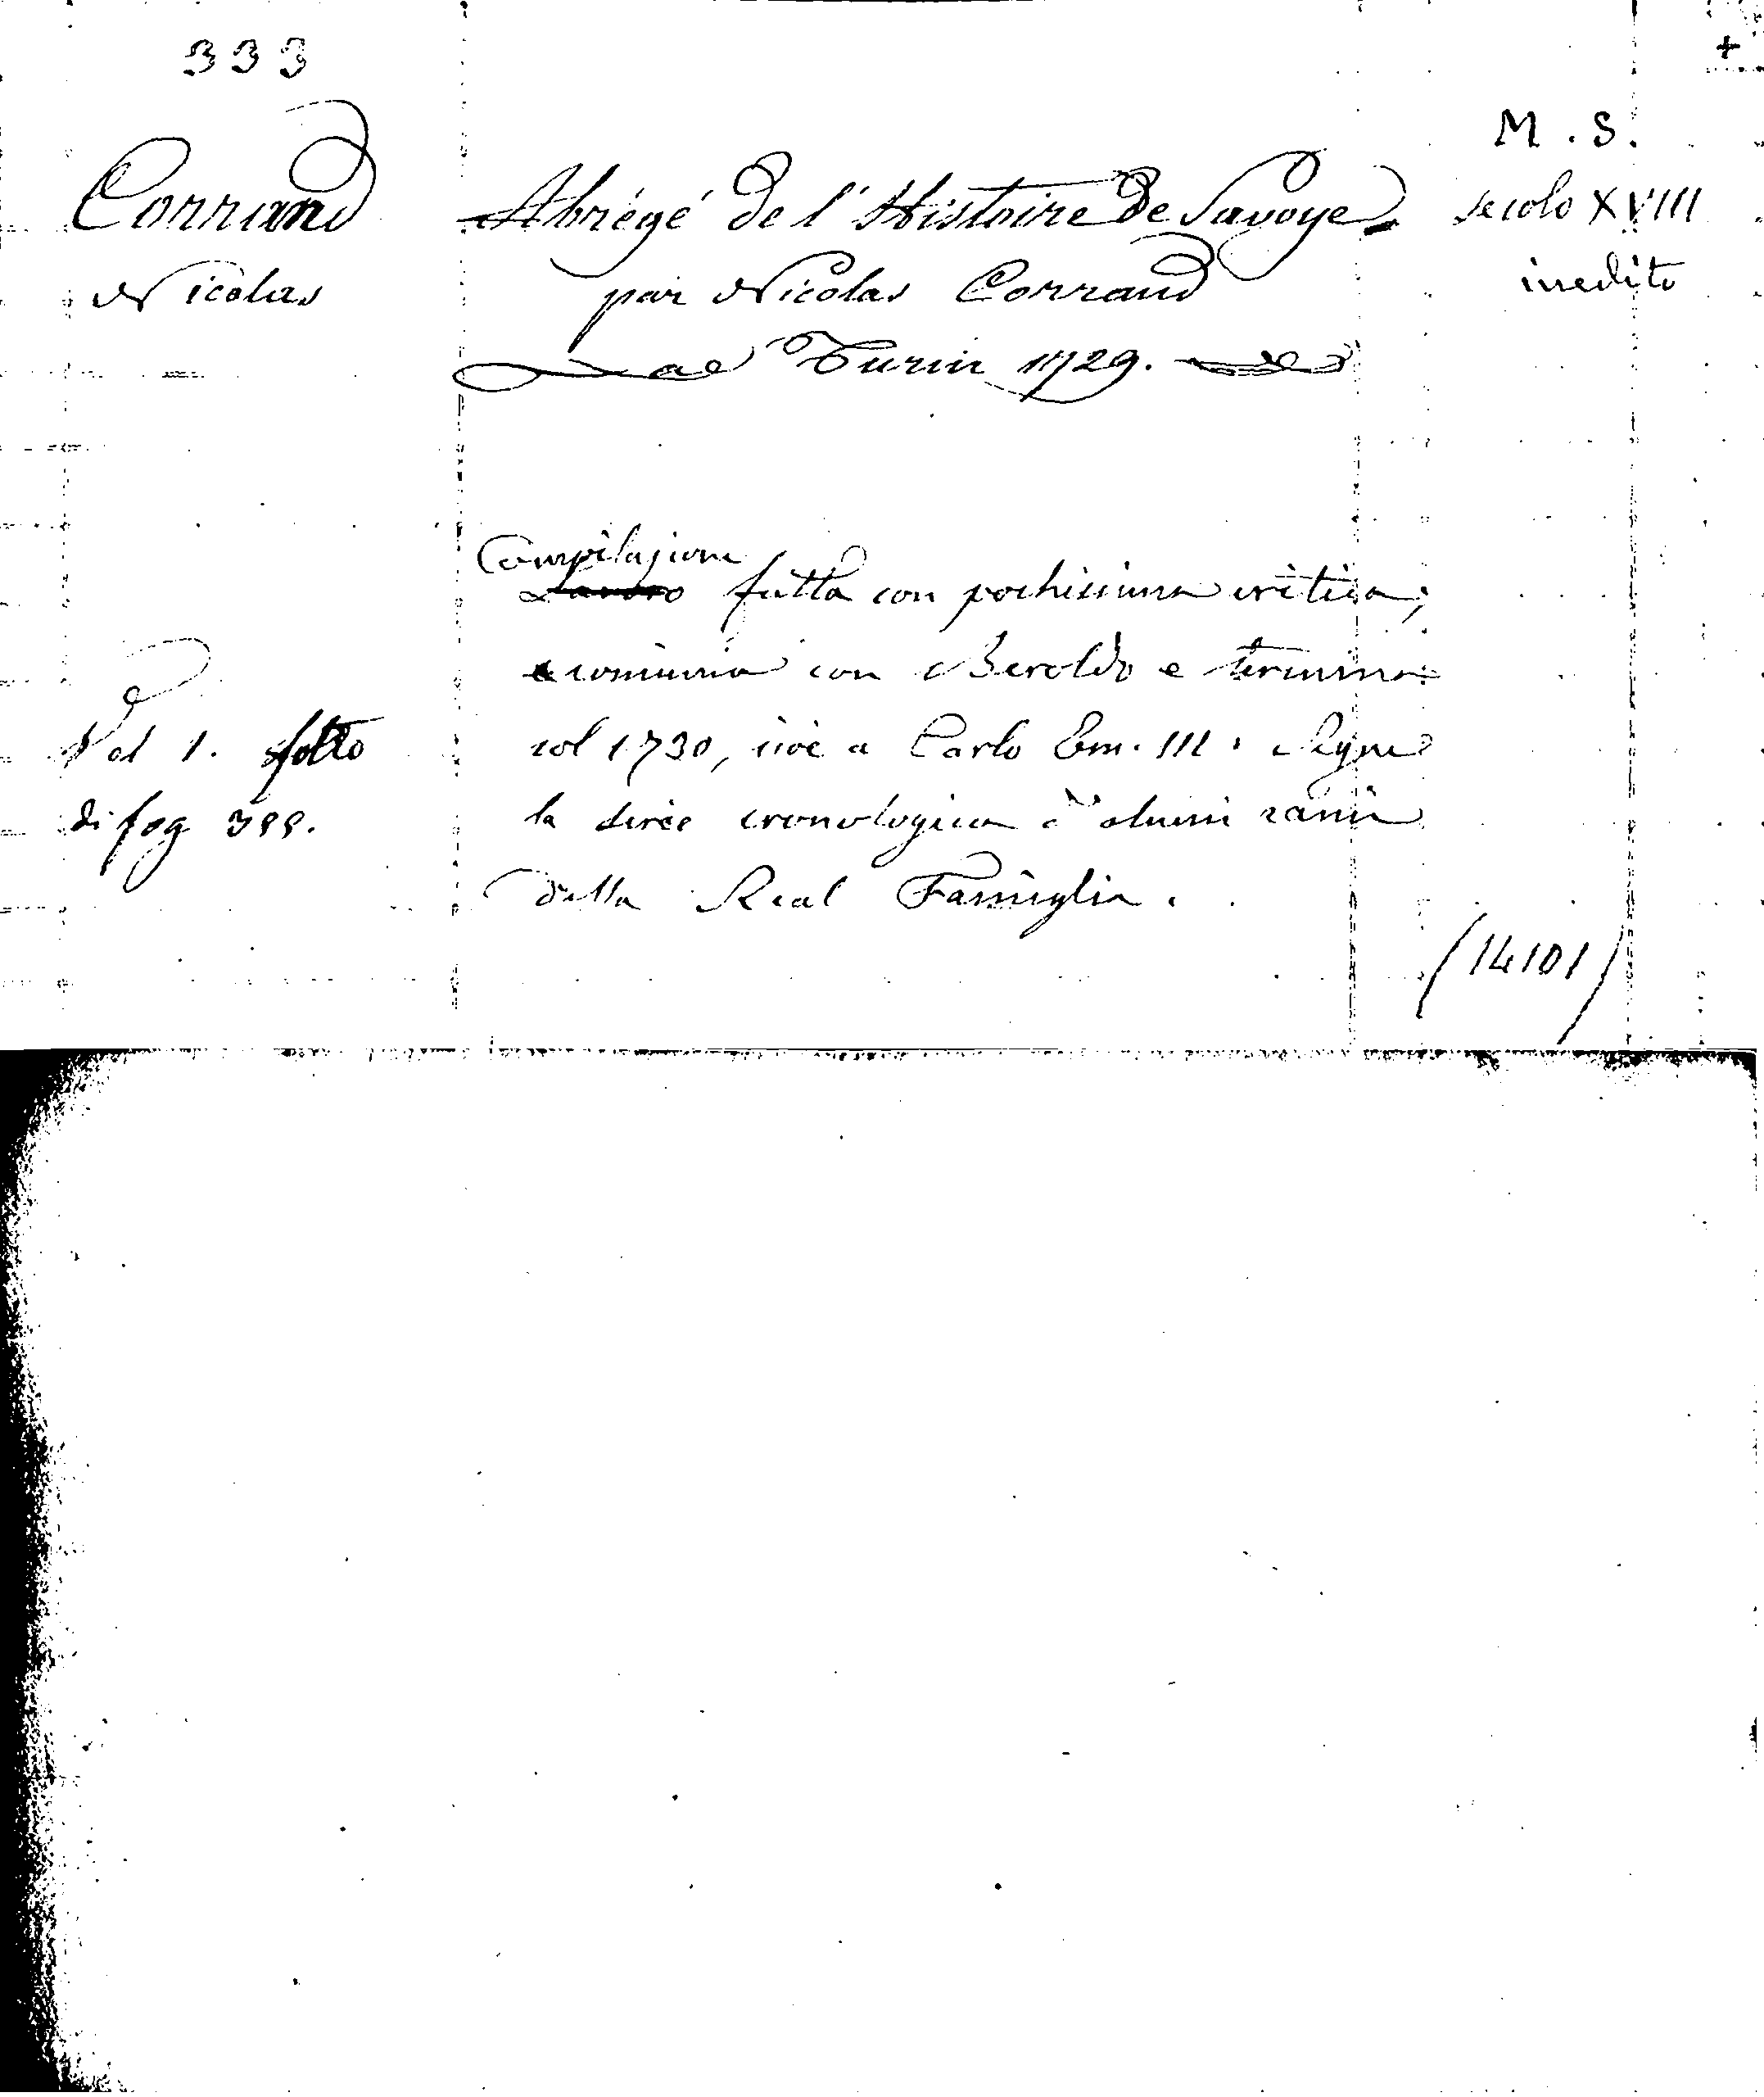 333
+
M. S.
Corrand
Abrégé de l'Histoire de Savoye
secolo XVIII
Nicolas
par Nicolas Corrand
inedito
Turin 1729.
Compilazione
Lavoro fatta con pochissima critica;
comincia con Beroldo e termina
Vol 1. folio
col 1730, cioè a Carlo Em. III.
di fog
la serie cronologica d'alcuni rami
della Real Famiglia.
(14101)